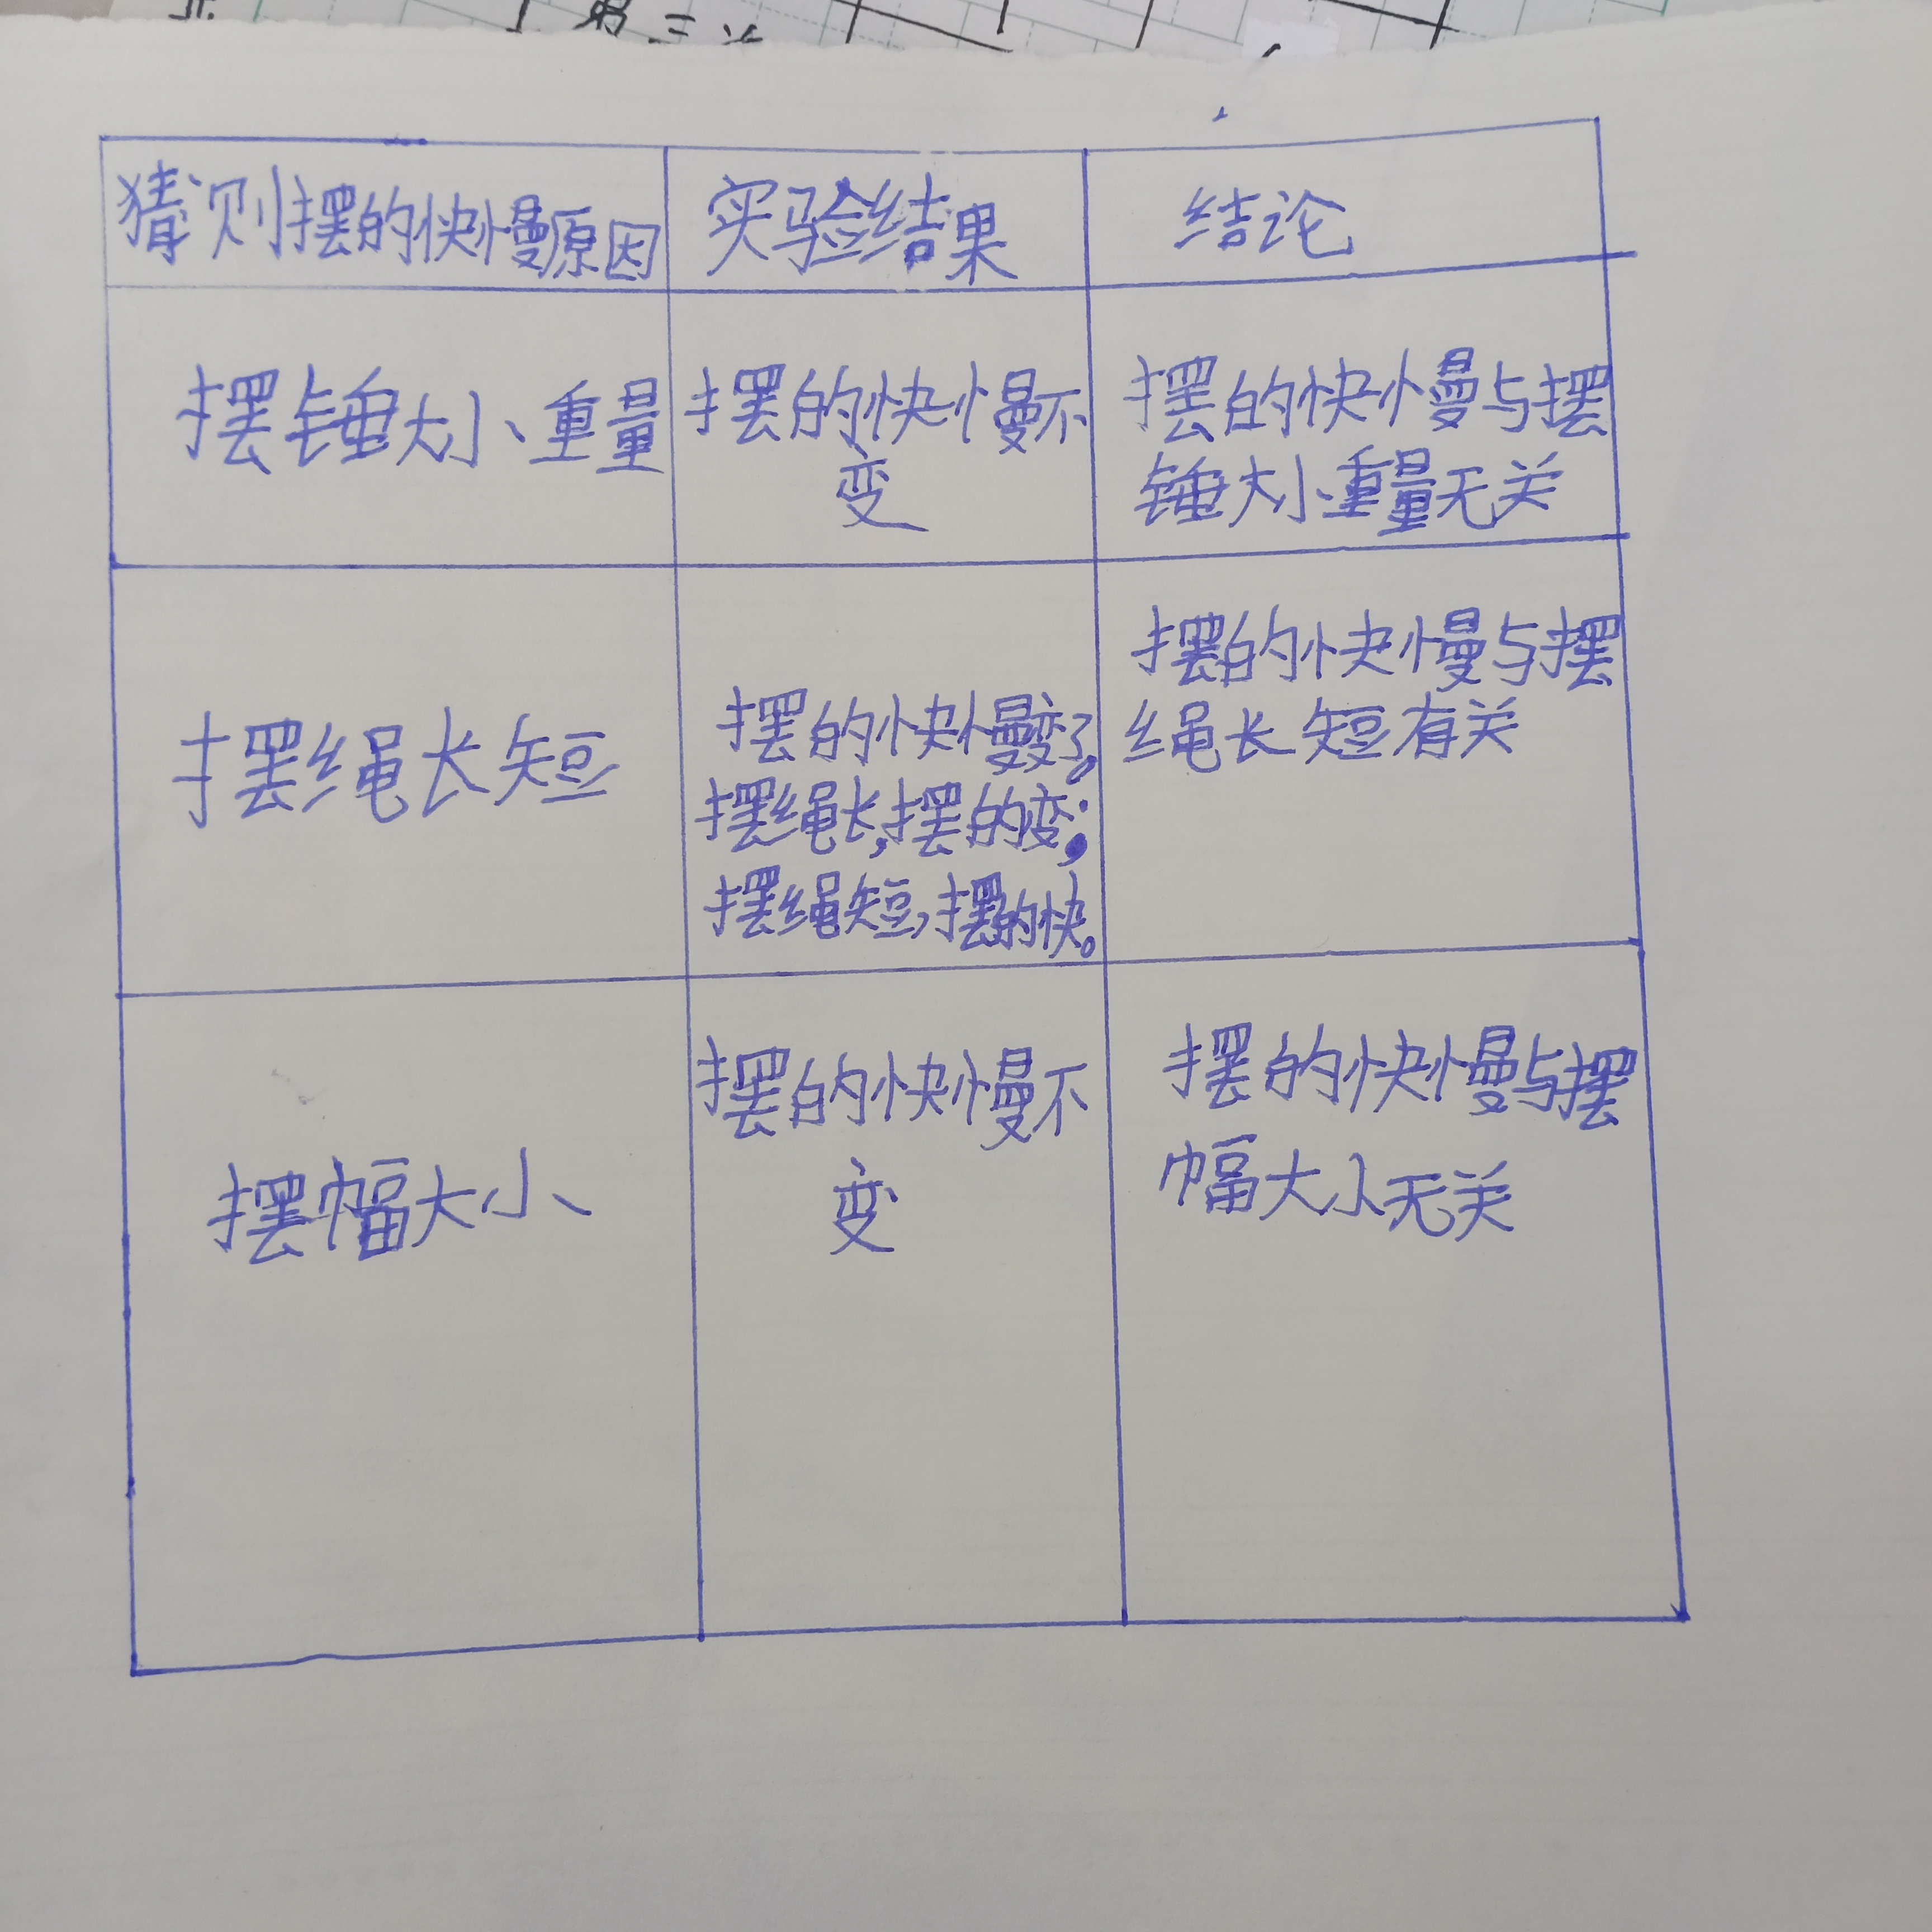 猜测摆的快慢原因
实验结果
结论
摆锤大小、重量
摆的快慢不
变
摆的快慢与摆
锤大小、重量无关
摆绳长短
摆的快慢变了。
摆绳长,摆的变;
摆绳短,摆的快。
摆的快慢与摆
绳长短有关
摆幅大小
摆的快慢不
变
摆的快慢与摆
幅大小无关